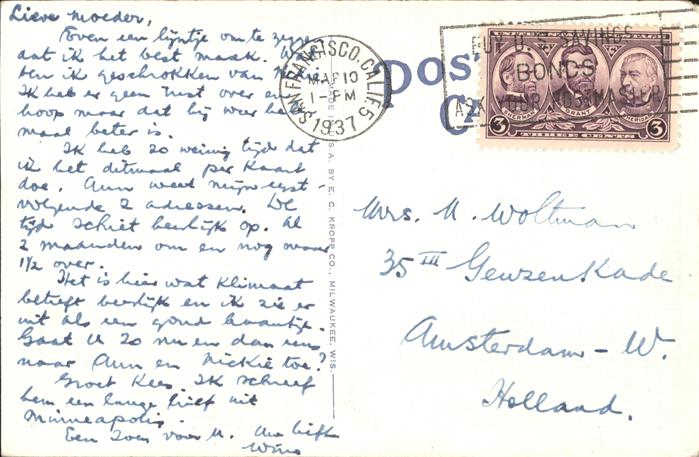 Lieve Moeder,
Even een lijntje om te zeggen
dat ik het best maak. Wat
ben ik geschrokken van
Ik heb er geen rust over en
hoop maar dat hij weer hele-
maal beter is.
Ik heb zo weinig tijd dat
ik het ditmaal per kaart
doe. Ann weet mijn eerst-
volgende 2 adressen. De
tijd schiet heerlijk op. Al
2 maanden om en nog maar
1½ over.
Het is hier wat klimaat
betreft heerlijk en ik zie er
uit als een goud haantje.
Gaat U zo nu en dan eens
naar Ann en Nickie toe?
Groet Kees. Ik schreef
hem een lange brief uit
Minneapolis.
Een zoen voor U. Uw liefh
Wim
MADE IN U.S.A. BY E. C. KROPP CO., MILWAUKEE, WIS.
SAN FRANCISCO, CALIF. 5
MAR 10
1-PM
1937
POS
CA
BUY U.S. SAVINGS
BONDS
ASK YOUR POSTMASTER
3 SHERMAN GRANT SHERIDAN 3
Mrs. M. Woltman
35 III Geuzenkade
Amsterdam - W.
Holland.